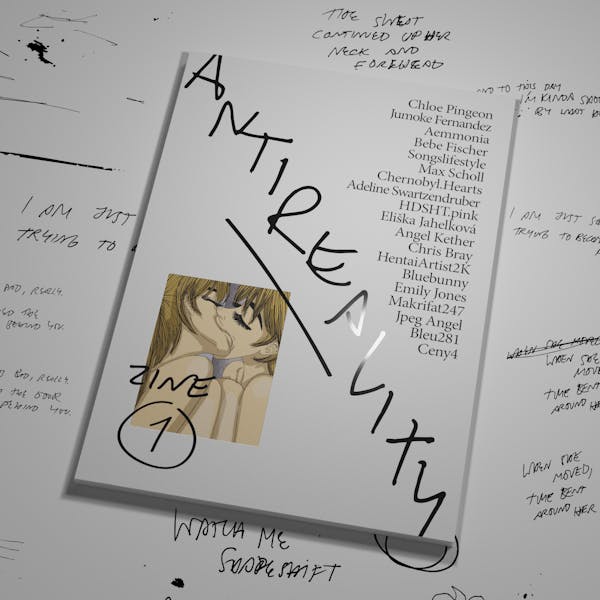 THE SWEAT
CONTINUED UP HER
NECK AND
FOREHEAD
AND TO THIS DAY
ANTIREALITY
Chloe Pingeon
Jumoke Fernandez
Aemmonia
Bebe Fischer
Songslifestyle
Max Scholl
Chernobyl.Hearts
Adeline Swartzendruber
HDSHT.pink
Eliška Jahelková
Angel Kether
Chris Bray
HentaiArtist2K
Bluebunny
Emily Jones
Makrifat247
Jpeg Angel
Bleu281
Ceny4
ZINE
1
I AM JUST
TRYING TO
BAD, REALLY.
BEHIND YOU.
BAD, REALLY.
THE DOOR
BEHIND YOU.
I AM JUST
TRYING TO
WHEN SHE
MOVED
TIME BENT
AROUND HER
WHEN SHE
MOVED,
TIME BENT
AROUND HER
WATCH ME
SHAPESHIFT